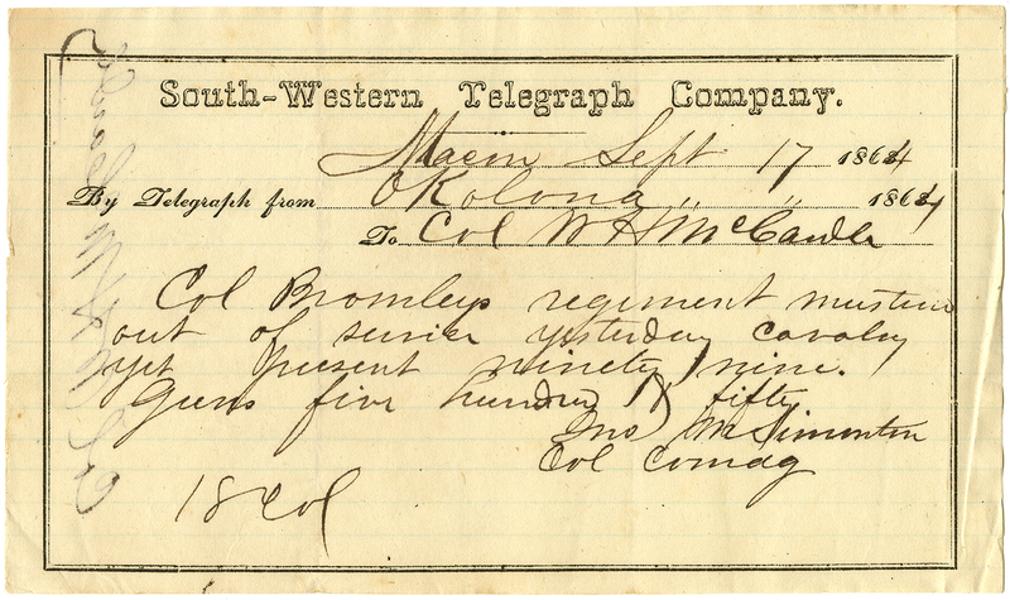 South-Western Telegraph Company.
Macon Sept 17 1864
By Telegraph from Okolona " " 1864
To Col W H McCardle
Col Bromleys regiment musterd
out of servic yesterday cavalry
yet present ninety nine.
Guns five hundred & fifty
Jno M Simonton
Col Comdg
18 Col